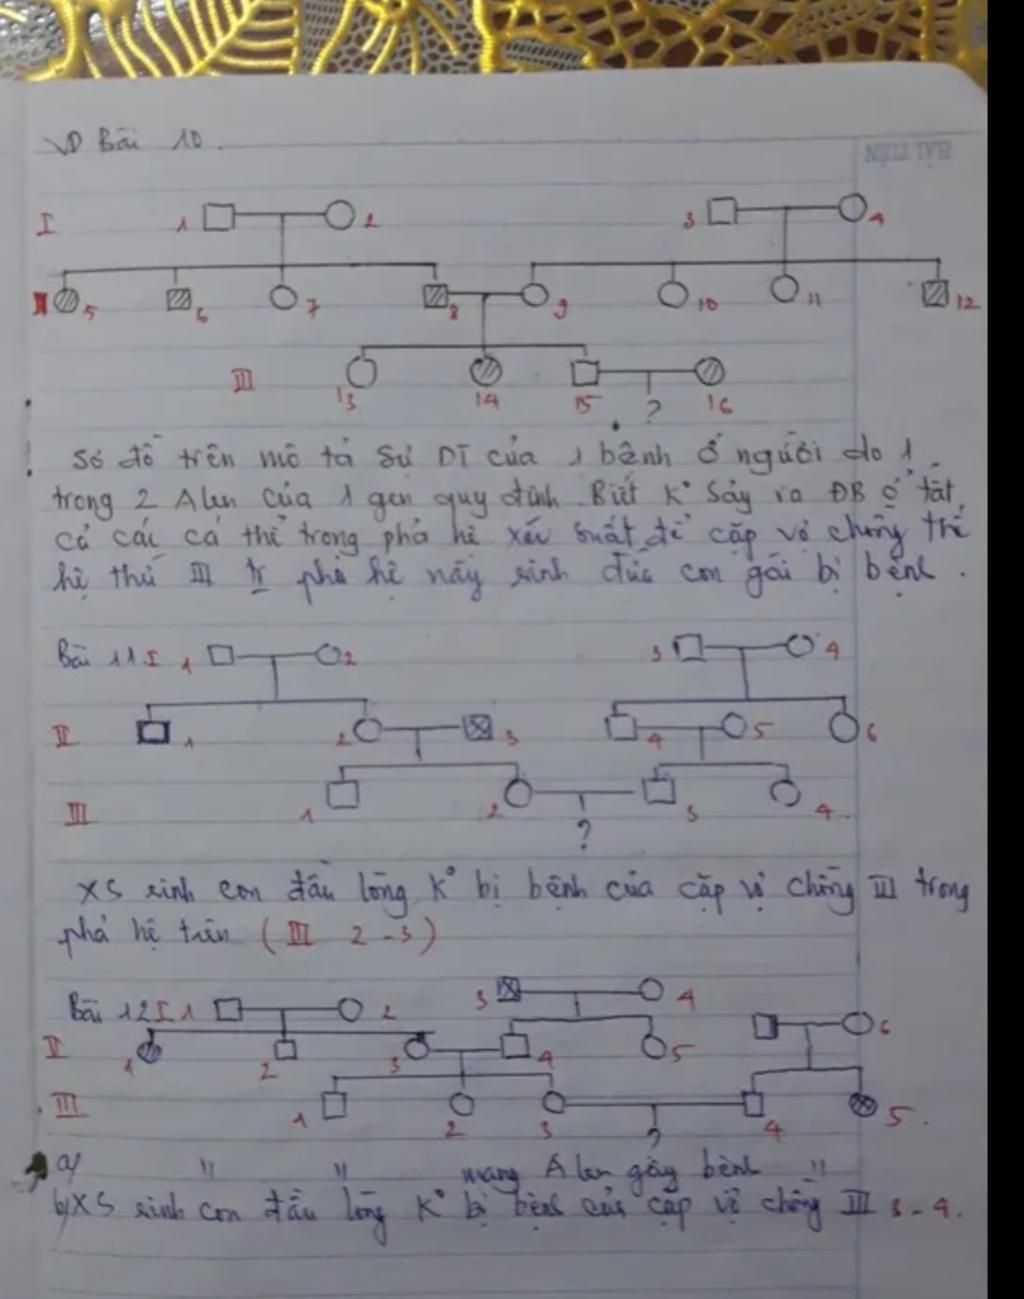 VD Bài 10.
HẢI TIẾN
I 1 2 3 4
II 5 6 7 8 9 10 11 12
III 13 14 15 ? 16
Sơ đồ trên mô tả Sự DT của 1 bệnh ở người do 1
trong 2 Alen của 1 gen quy định. Biết K° Sảy ra ĐB ở tất
cả các cá thể trong phả hệ xác suất để cặp vợ chồng thế
hệ thứ III tr phả hệ này sinh đứa con gái bị bệnh.
Bài 11. I 1 2 3 4
II 1 2 3 4 5 6
III 1 2 ? 3 4.
XS sinh con đầu lòng K° bị bệnh của cặp vợ chồng III trong
phả hệ trên (III 2-3)
Bài 12 I 1 2 3 4 6
II 1 2 3 4 5
III 1 2 3 ? 4 5.
a/ " " mang Alen gây bệnh "
b/ XS sinh con đầu lòng K° bị bệnh của cặp vợ chồng III 3-4.